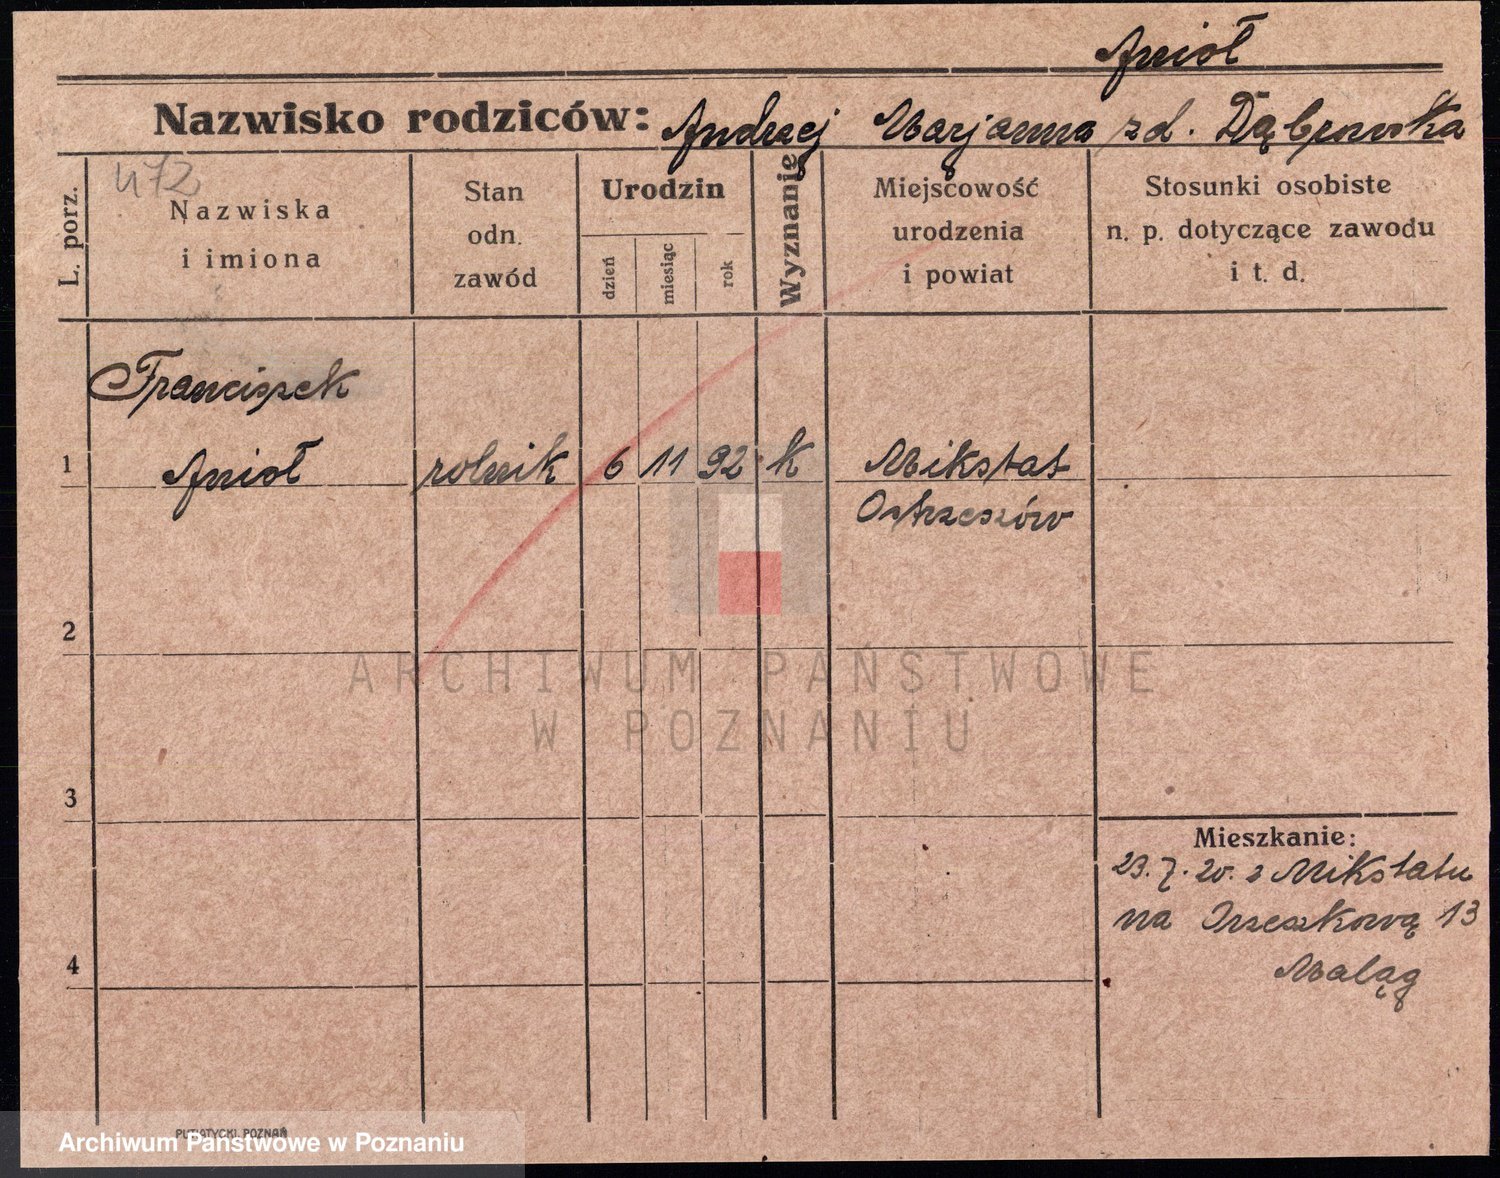 Anioł
Nazwisko rodziców: Andrzej Marjanna zd. Dąbrowska
472
L. porz.
Nazwiska
i imiona
Stan
odn.
zawód
Urodzin
dzień
miesiąc
rok
Wyznanie
Miejscowość
urodzenia
i powiat
Stosunki osobiste
n. p. dotyczące zawodu
i t. d.
Franciszek
1 Anioł rolnik 6 11 92 k Mikstat
Ostrzeszów
2
ARCHIWUM PAŃSTWOWE
W POZNANIU
3
Mieszkanie:
23. 7. 20. z Mikstatu
na Orzeszkową 13
4
PUTIATYCKI, POZNAŃ
Archiwum Państwowe w Poznaniu